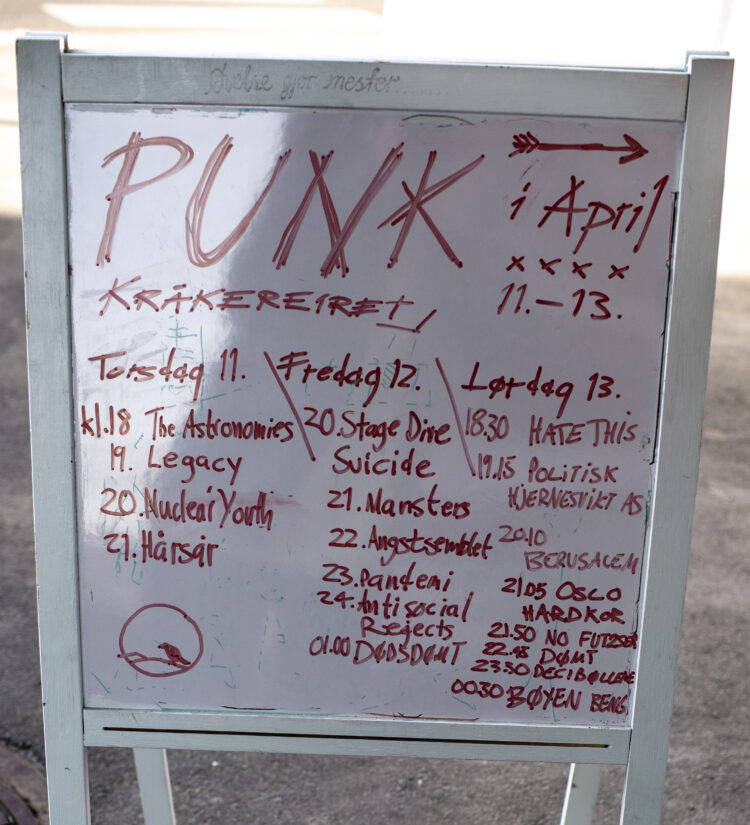 Øvelse gjør mester......
PUNK
i April
x x x x
KRÅKEREIRET,
11.–13.
Torsdag 11.
kl.18 The Astronomies
19. Legacy
20. Nuclear Youth
21. Hårsår
Fredag 12.
20. Stage Dive
Suicide
21. Mansters
22. Angstsemblet
23. Pandemi
24. Antisocial
Rejects
01.00 DØDSDØMT
Lørdag 13.
18.30 HATE THIS
19.15 POLITISK
HJERNESVIKT AS
20.10
BERUSALEM
21.05 OSLO
HARDKOR
21.50 NO FUTZSER
22.45 DØMT
23.30 DECIBØLLENE
00.30 BØYEN BENG